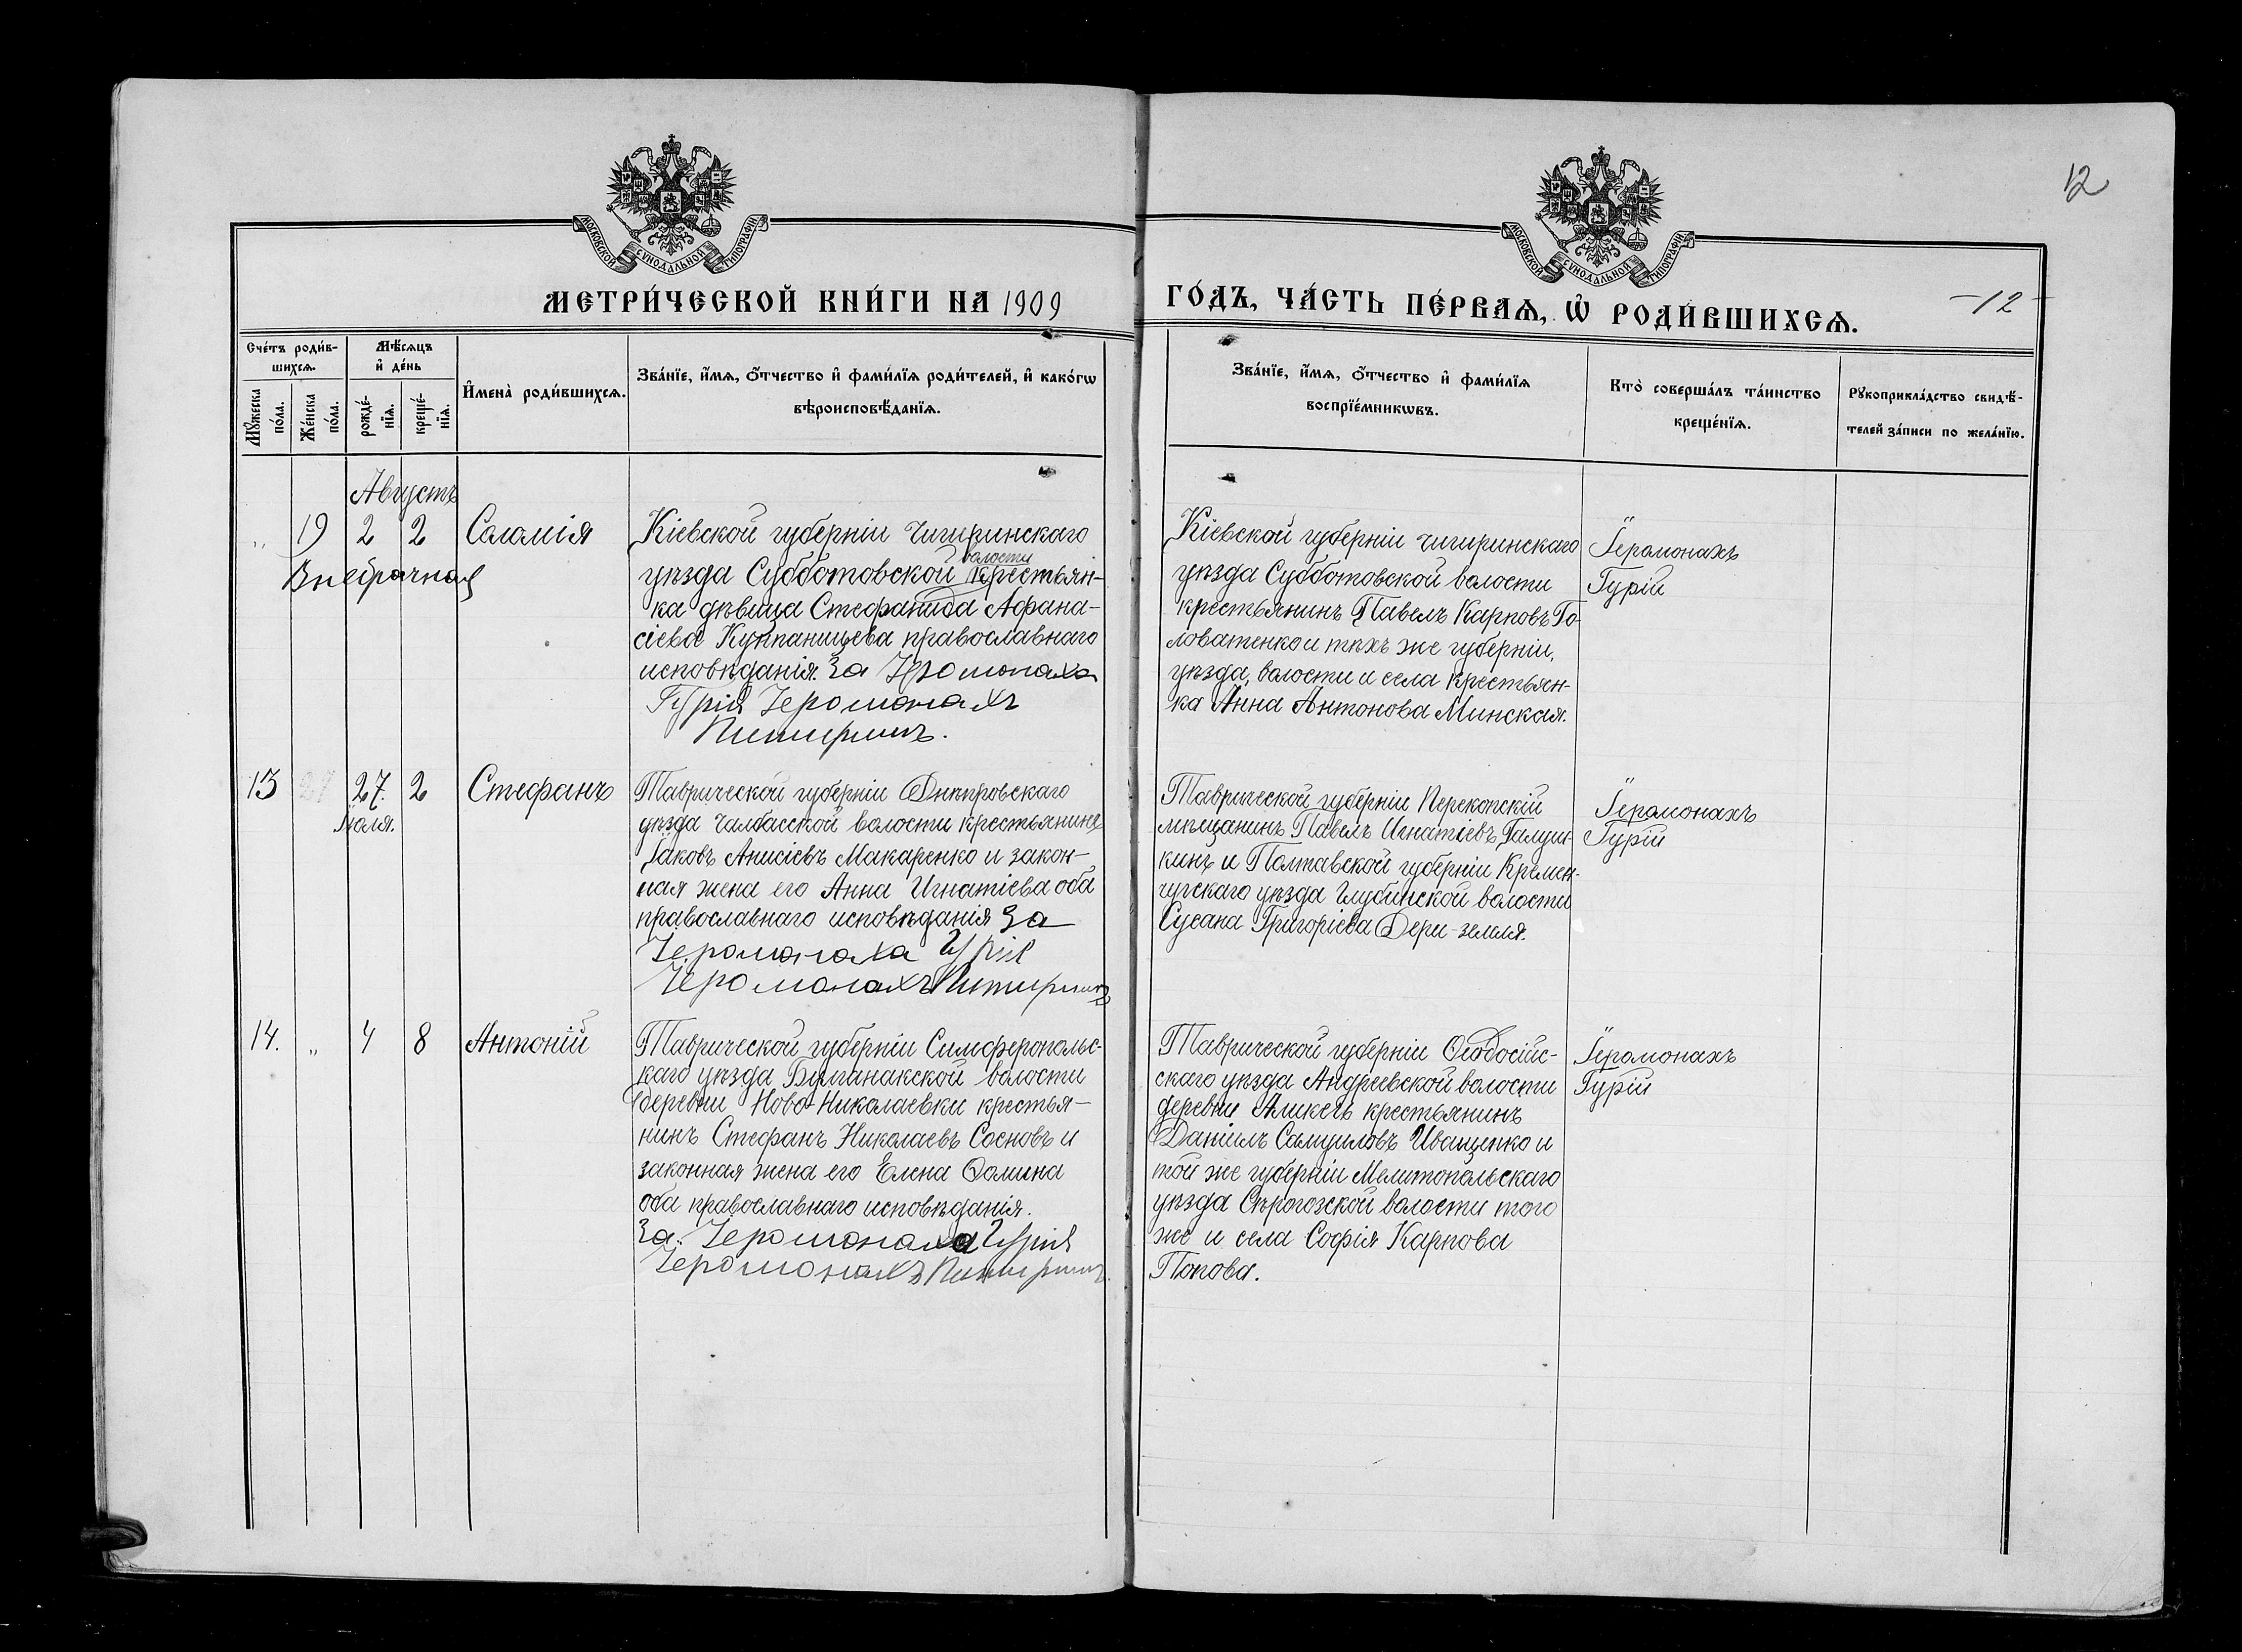 12
МОСКОВСКОЙ СѴНОДАЛЬНОЙ ТИПОГРАФІИ
МОСКОВСКОЙ СѴНОДАЛЬНОЙ ТИПОГРАФІИ
МЕТРИ́ЧЕСКОЙ КНИ́ГИ НА 1909
ГО́ДЪ, ЧА́СТЬ ПЕ́РВАѦ, Ѡ҆ РОДИ́ВШИХСѦ.
-12-
Сче́тъ роди́в-
шихсѧ.
Мꙋ́жеска по́ла.
Же́нска по́ла.
Мѣ́сѧцъ
и҆ де́нь
рожде́-
нїѧ.
креще́-
нїѧ.
И҆мена̀ роди́вшихсѧ.
Зва́нїе, и҆́мѧ, ѻ҆́тчество и҆ фами́лїѧ роди́телей, и҆ како́гѡ
вѣроисповѣ́данїѧ.
Зва́нїе, и҆́мѧ, ѻ҆́тчество и҆ фами́лїѧ
воспрїе́мникѡвъ.
Кто̀ соверша́лъ та́инство
креще́нїѧ.
Рꙋкоприкла́дство свидѣ́-
телей за́писи по жела́нїю.
Августъ
„ 19 2 2 Саломія
Внебрачная
Кіевской губерніи Чигиринскаго
уѣзда Субботовской волости крестьян-
ка дѣвица Стефанида Афана-
сіева православнаго
исповѣданія. За Іеромонаха
Гурія Іеромонахъ
Питиримъ.
Кіевской губерніи Чигиринскаго
уѣзда Субботовской волости
крестьянинъ Павелъ Карповъ Го-
ловатенко и тѣхъ же губерніи,
уѣзда, волости и села крестьян-
ка Анна Антонова Минская.
Іеромонахъ
Гурій
13 27 27. 2 Стефанъ
Іюля.
Таврической губерніи Днѣпровскаго
уѣзда Чалбасской волости крестьянинъ
Іаковъ Анисіевъ Макаренко и закон-
ная жена его Анна Игнатіева оба
православнаго исповѣданія За
Іеромонаха Гурія
Іеромонахъ Питиримъ
Таврической губерніи Перекопскій
мѣщанинъ Павелъ Игнатіевъ Галуш-
кинъ и Полтавской губерніи Кремен-
чугскаго уѣзда Глубинской волости
Сусана Григоріева Дери-земля.
Іеромонахъ
Гурій
14. „ 4 8 Антоній
Таврической губерніи Симферопольс-
каго уѣзда Булганакской волости
деревни Ново-Николаевки крестья-
нинъ Стефанъ Николаевъ Сосновъ и
законная жена его Елена Ѳомина
оба православнаго исповѣданія.
За Іеромонаха Гурія
Іеромонахъ Питиримъ.
Таврической губерніи Ѳеодосійс-
скаго уѣзда Андреевской волости
деревни крестьянинъ
Даніилъ Самуиловъ Иващенко и
той же губерніи Мелитопольскаго
уѣзда Сѣрогозской волости того
же и села Софія Карпова
Попова.
Іеромонахъ
Гурій